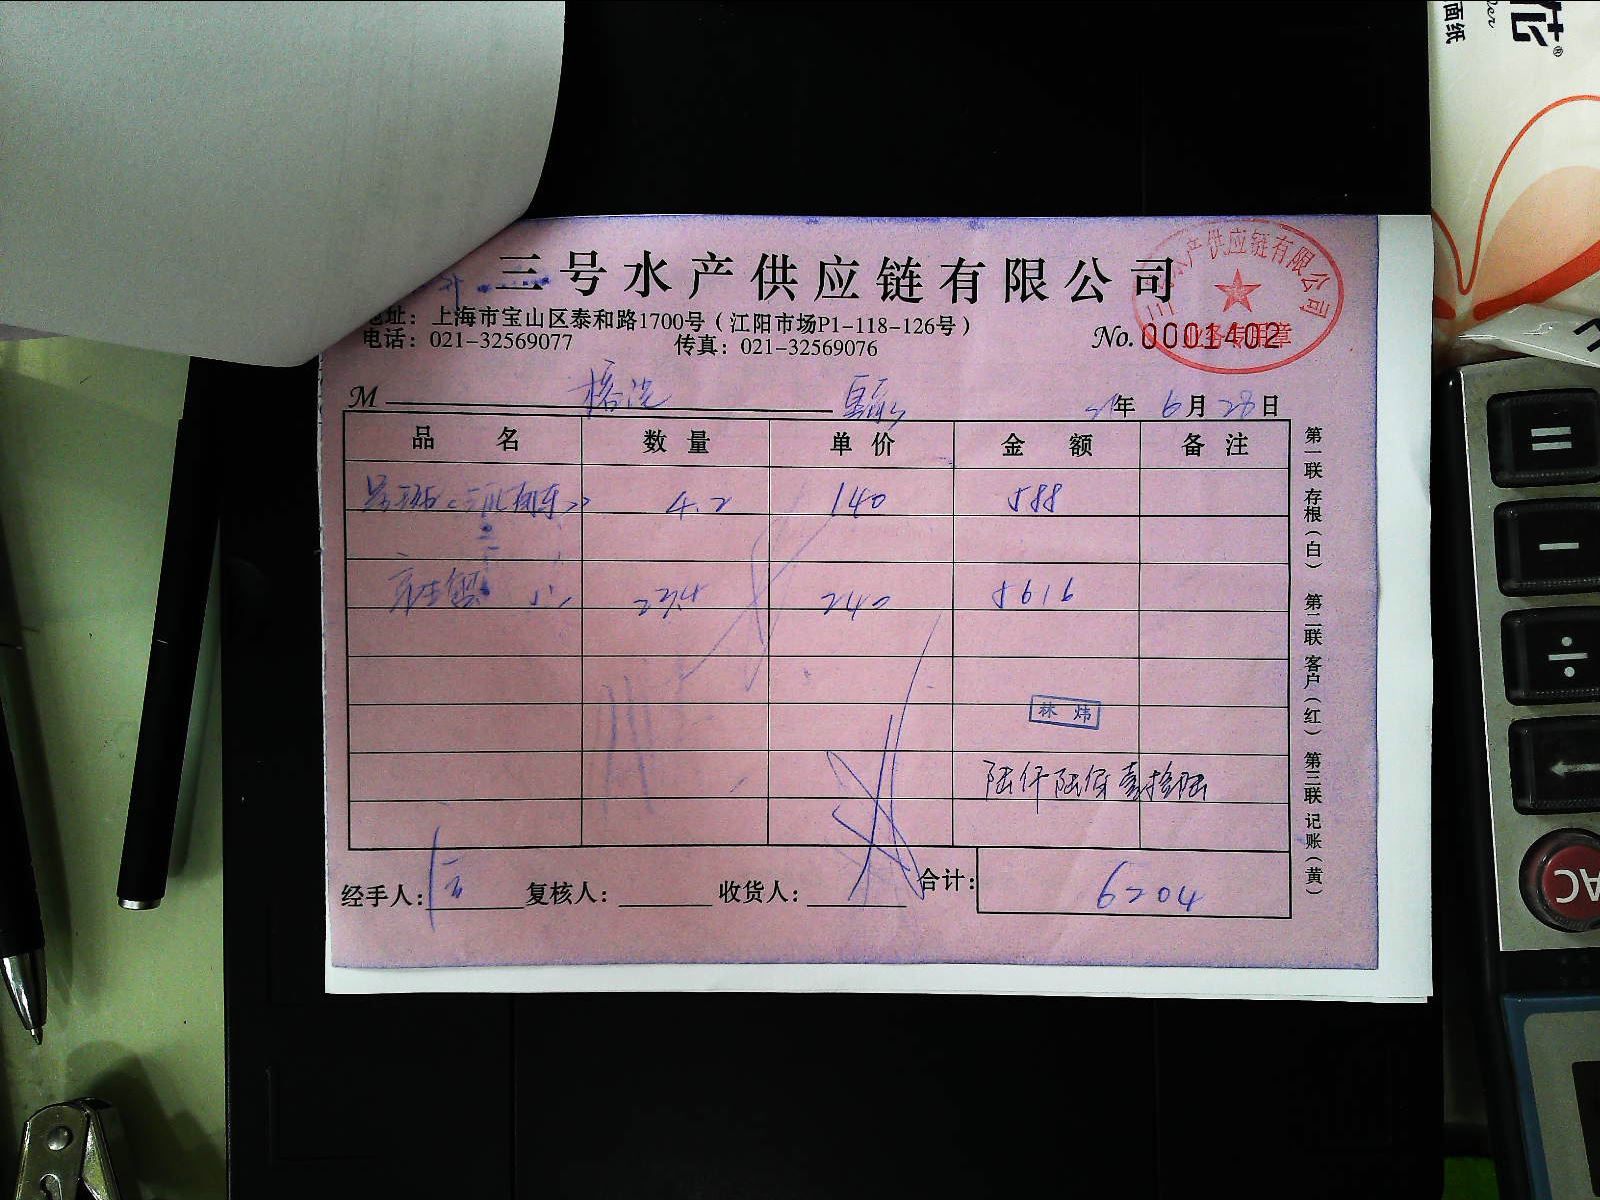 三号水产供应链有限公司
地址：上海市宝山区泰和路1700号（江阳市场P1-118-126号）
电话：021-32569077 传真：021-32569076
No.0001402
三 水产供应链有限公司
业务专用章
M 年 6月28日
品名 数量 单价 金额 备注
4.2 140 588
23.4 240 5616
林炜
陆仟陆佰壹拾陆
经手人： 复核人： 收货人： 合计： 6204
第一联 存根（白） 第二联 客户（红） 第三联 记账（黄）
面纸
AC